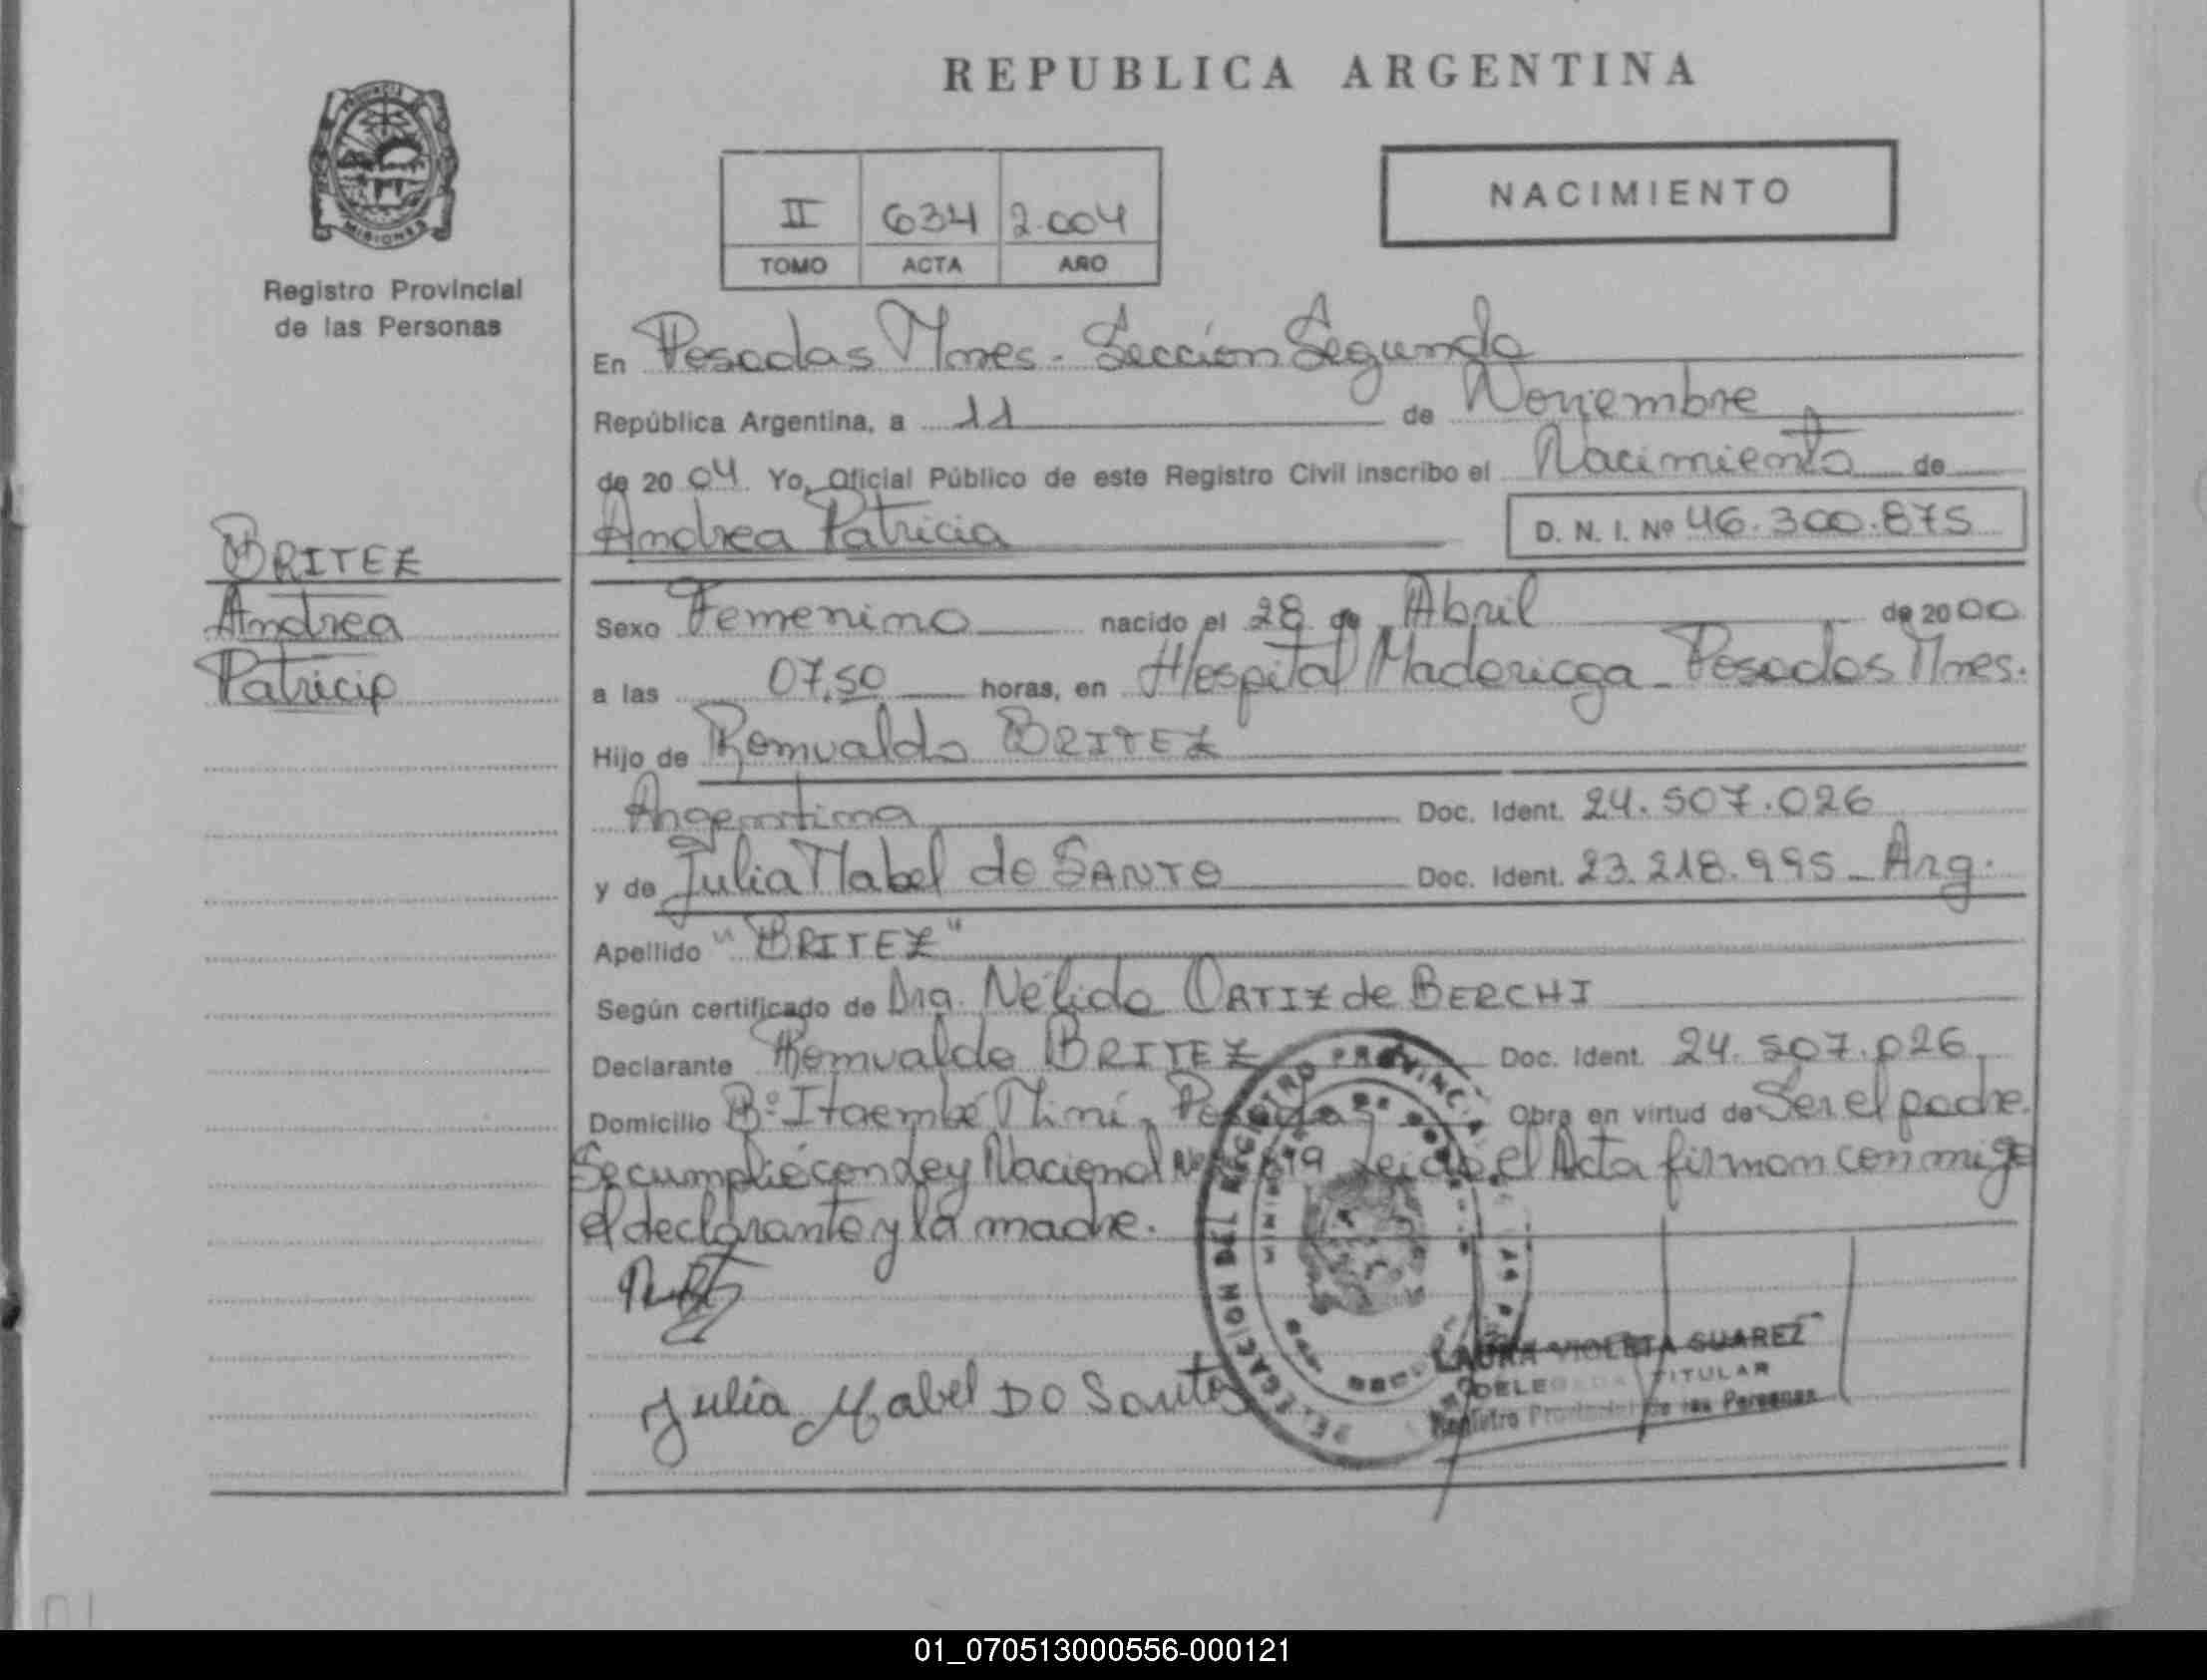 REPUBLICA ARGENTINA
PROVINCIA DE
MISIONES
Registro Provincial
de las Personas
NACIMIENTO
II 634 2.004
TOMO ACTA AÑO
En Posadas Mnes - Sección Segunda
República Argentina, a 11 de Noviembre
de 2004. Yo, Oficial Público de este Registro Civil inscribo el Nacimiento de
Andrea Patricia D. N. I. Nº 46.300.875
BRITEZ
Andrea
Patricia
Sexo Femenino nacido el 28 de Abril de 2000
a las 07,50 horas, en Hospital Madariaga - Posadas Mnes.
Hijo de Romualdo BRITEZ
Argentina Doc. Ident. 24.507.026
y de Julia Mabel do SANTO Doc. Ident. 23.218.995 - Arg.
Apellido "BRITEZ"
Según certificado de Dra. Nélida ORTIZ de BERCHI
Declarante Romualdo BRITEZ Doc. Ident. 24.507.026
Domicilio Bº Itaembé Miní, Posadas Obra en virtud de Ser el padre.
Se cumplió con Ley Nacional Leida el Acta firman conmigo
el declarante y la madre.
Julia Mabel Do Santo
DELEGACION DEL REGISTRO PROVINCIAL
LAURA VIOLETA SUAREZ
DELEGADA TITULAR
Registro Provincial de las Personas
01_070513000556-000121